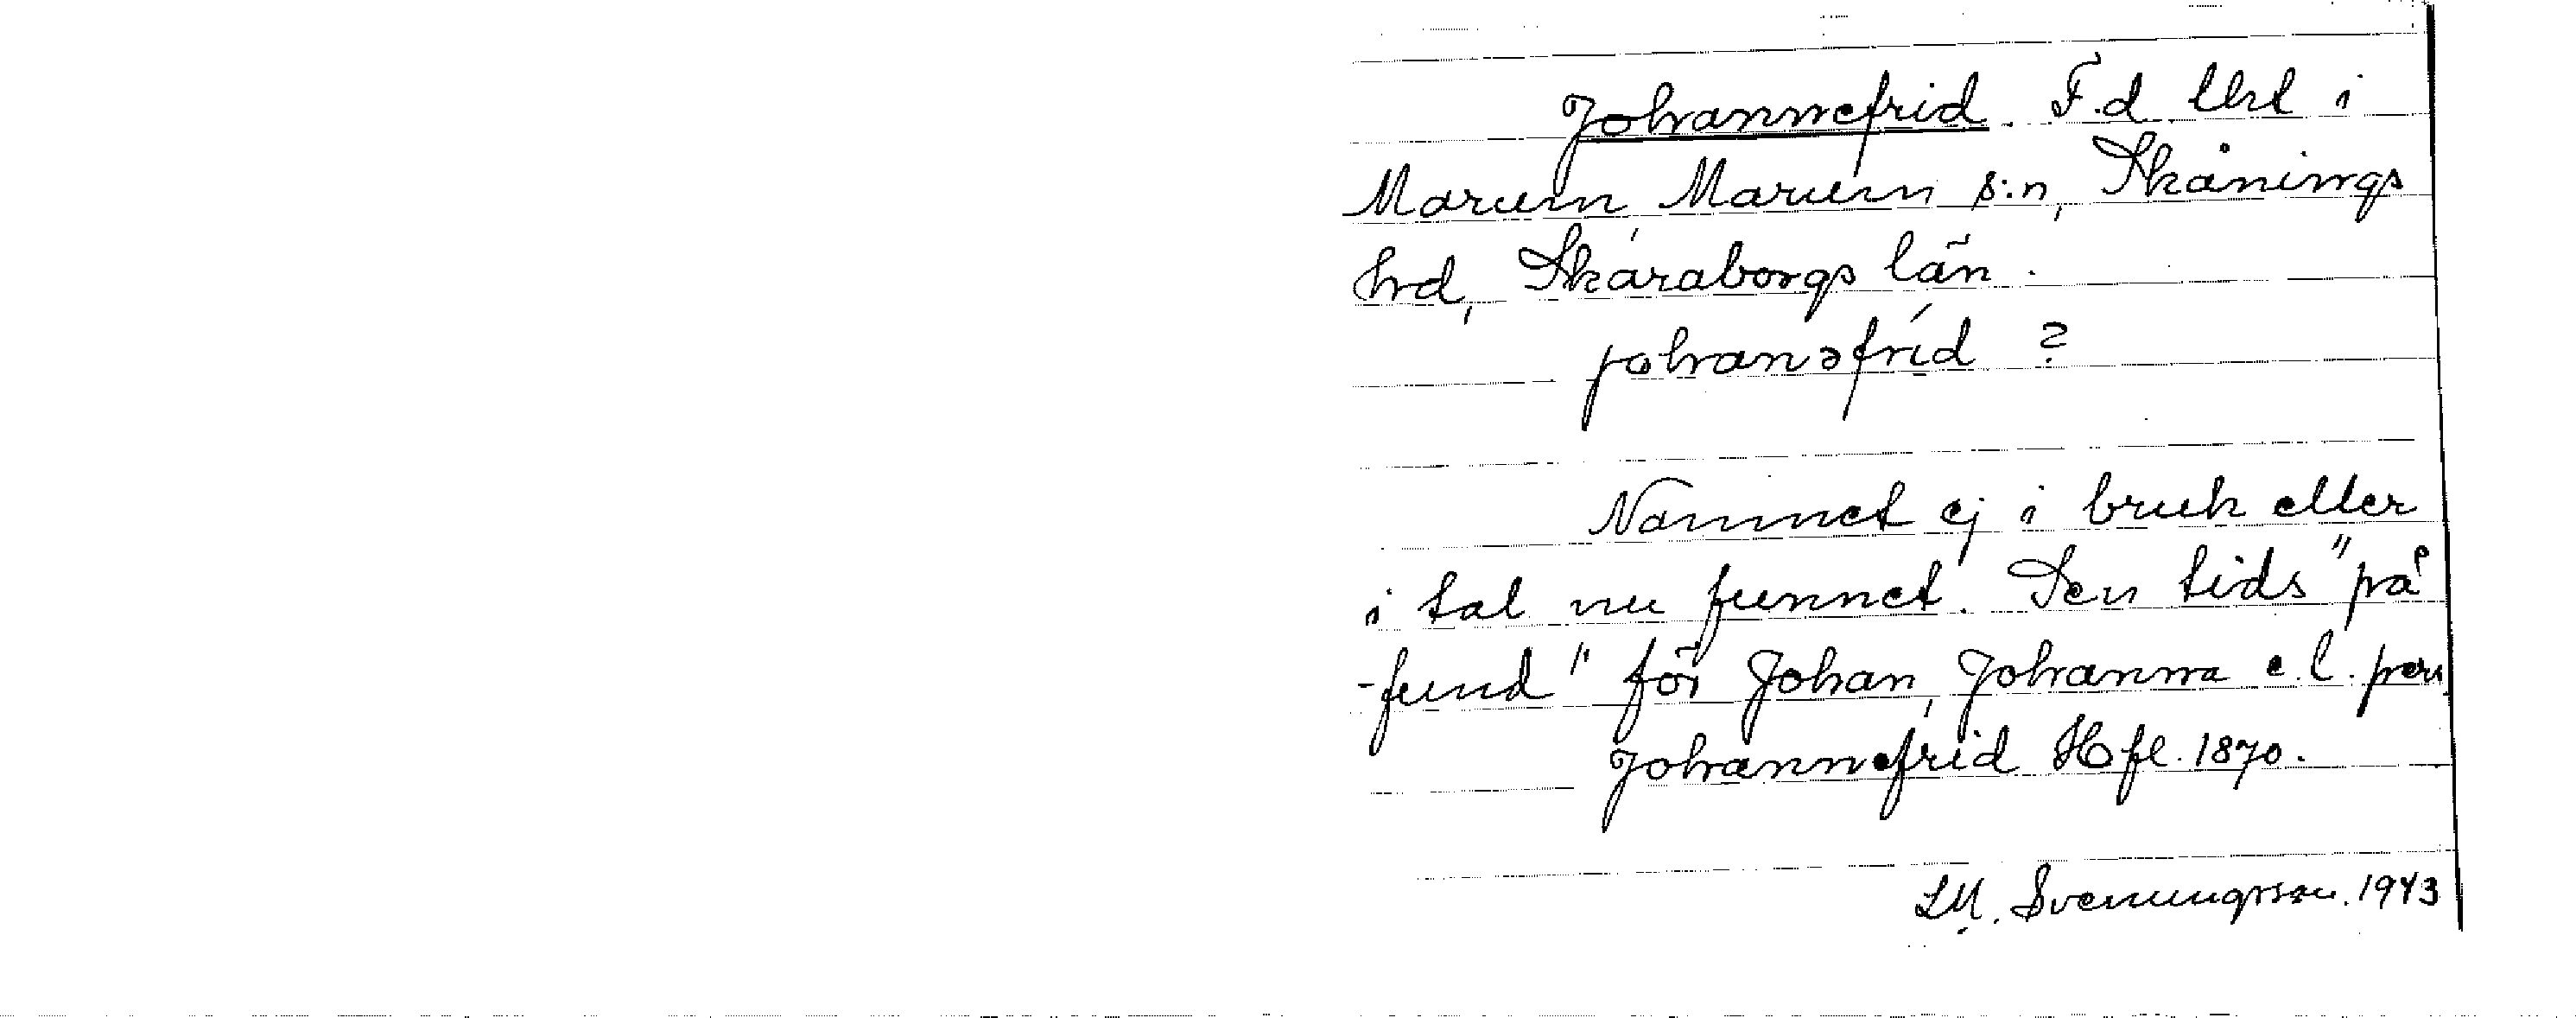 Johannefrid. F.d. lht i
Marum, Marum s:n, Skånings
hrd, Skaraborgs län.
johanəfrid ?
Namnet ej i bruk eller
i tal nu funnet. Den tids "på
-fund" för Johan, Johanna e.l. pers.
Johannefrid Hfl. 1870.
LM. Svenungsson. 1943